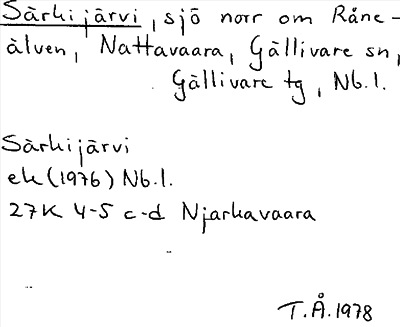 Särkijärvi, sjö norr om Råne-
älven, Nattavaara, Gällivare sn,
Gällivare tg, Nb.l.
Särkijärvi
ek (1976) Nb.l.
27K 4-5 c-d Njarkavaara
T.Å. 1978